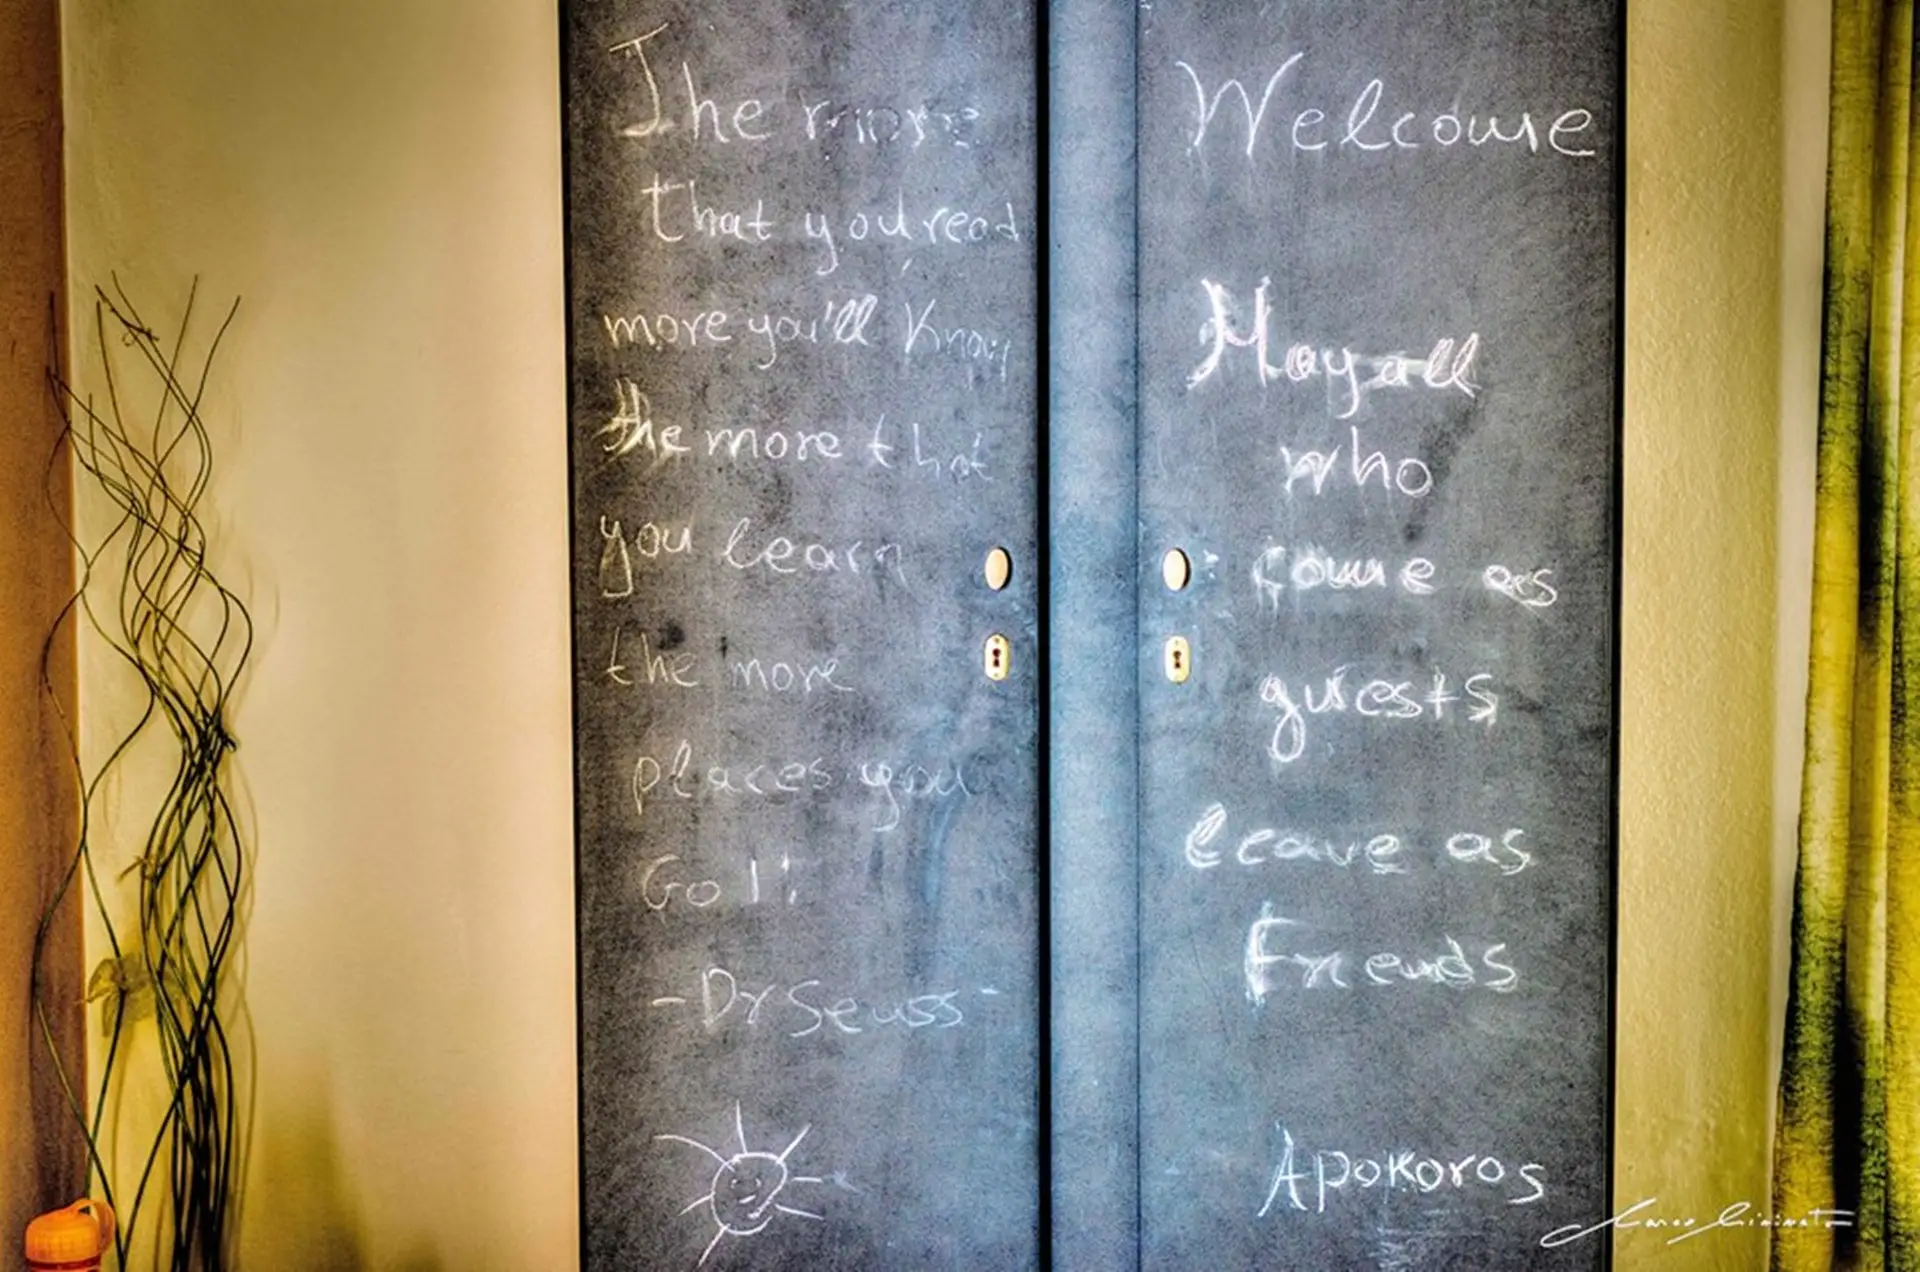 The more
that you read
more you'll Know
the more that
you learn
the more
places you
Go!!
- Dr Seuss -
Welcome
May all
who
come as
guests
leave as
Friends
Apokoros